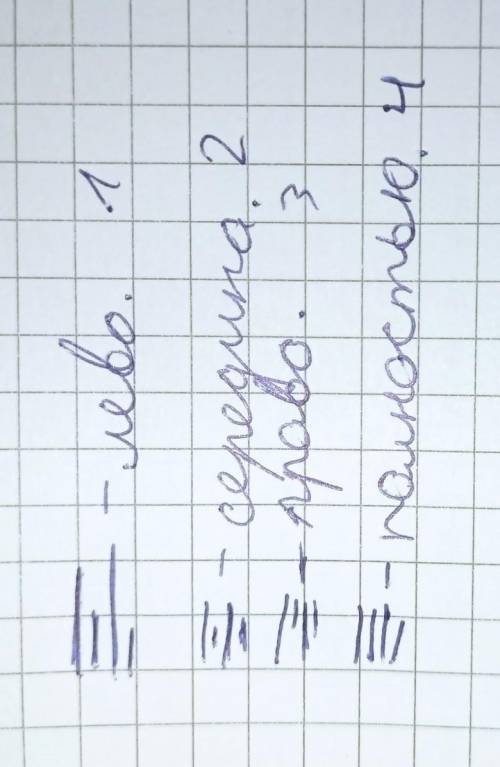 - лево. .1
- середина. 2
- право. 3
- полностью. 4